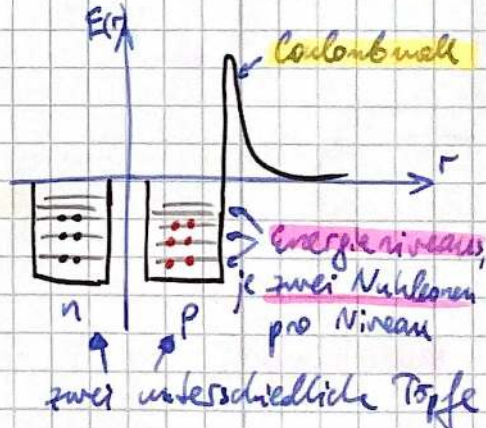 E(r)
Coulombwall
r
Energieniveaus,
je zwei Nukleonen
pro Niveau
n
p
zwei unterschiedliche Töpfe